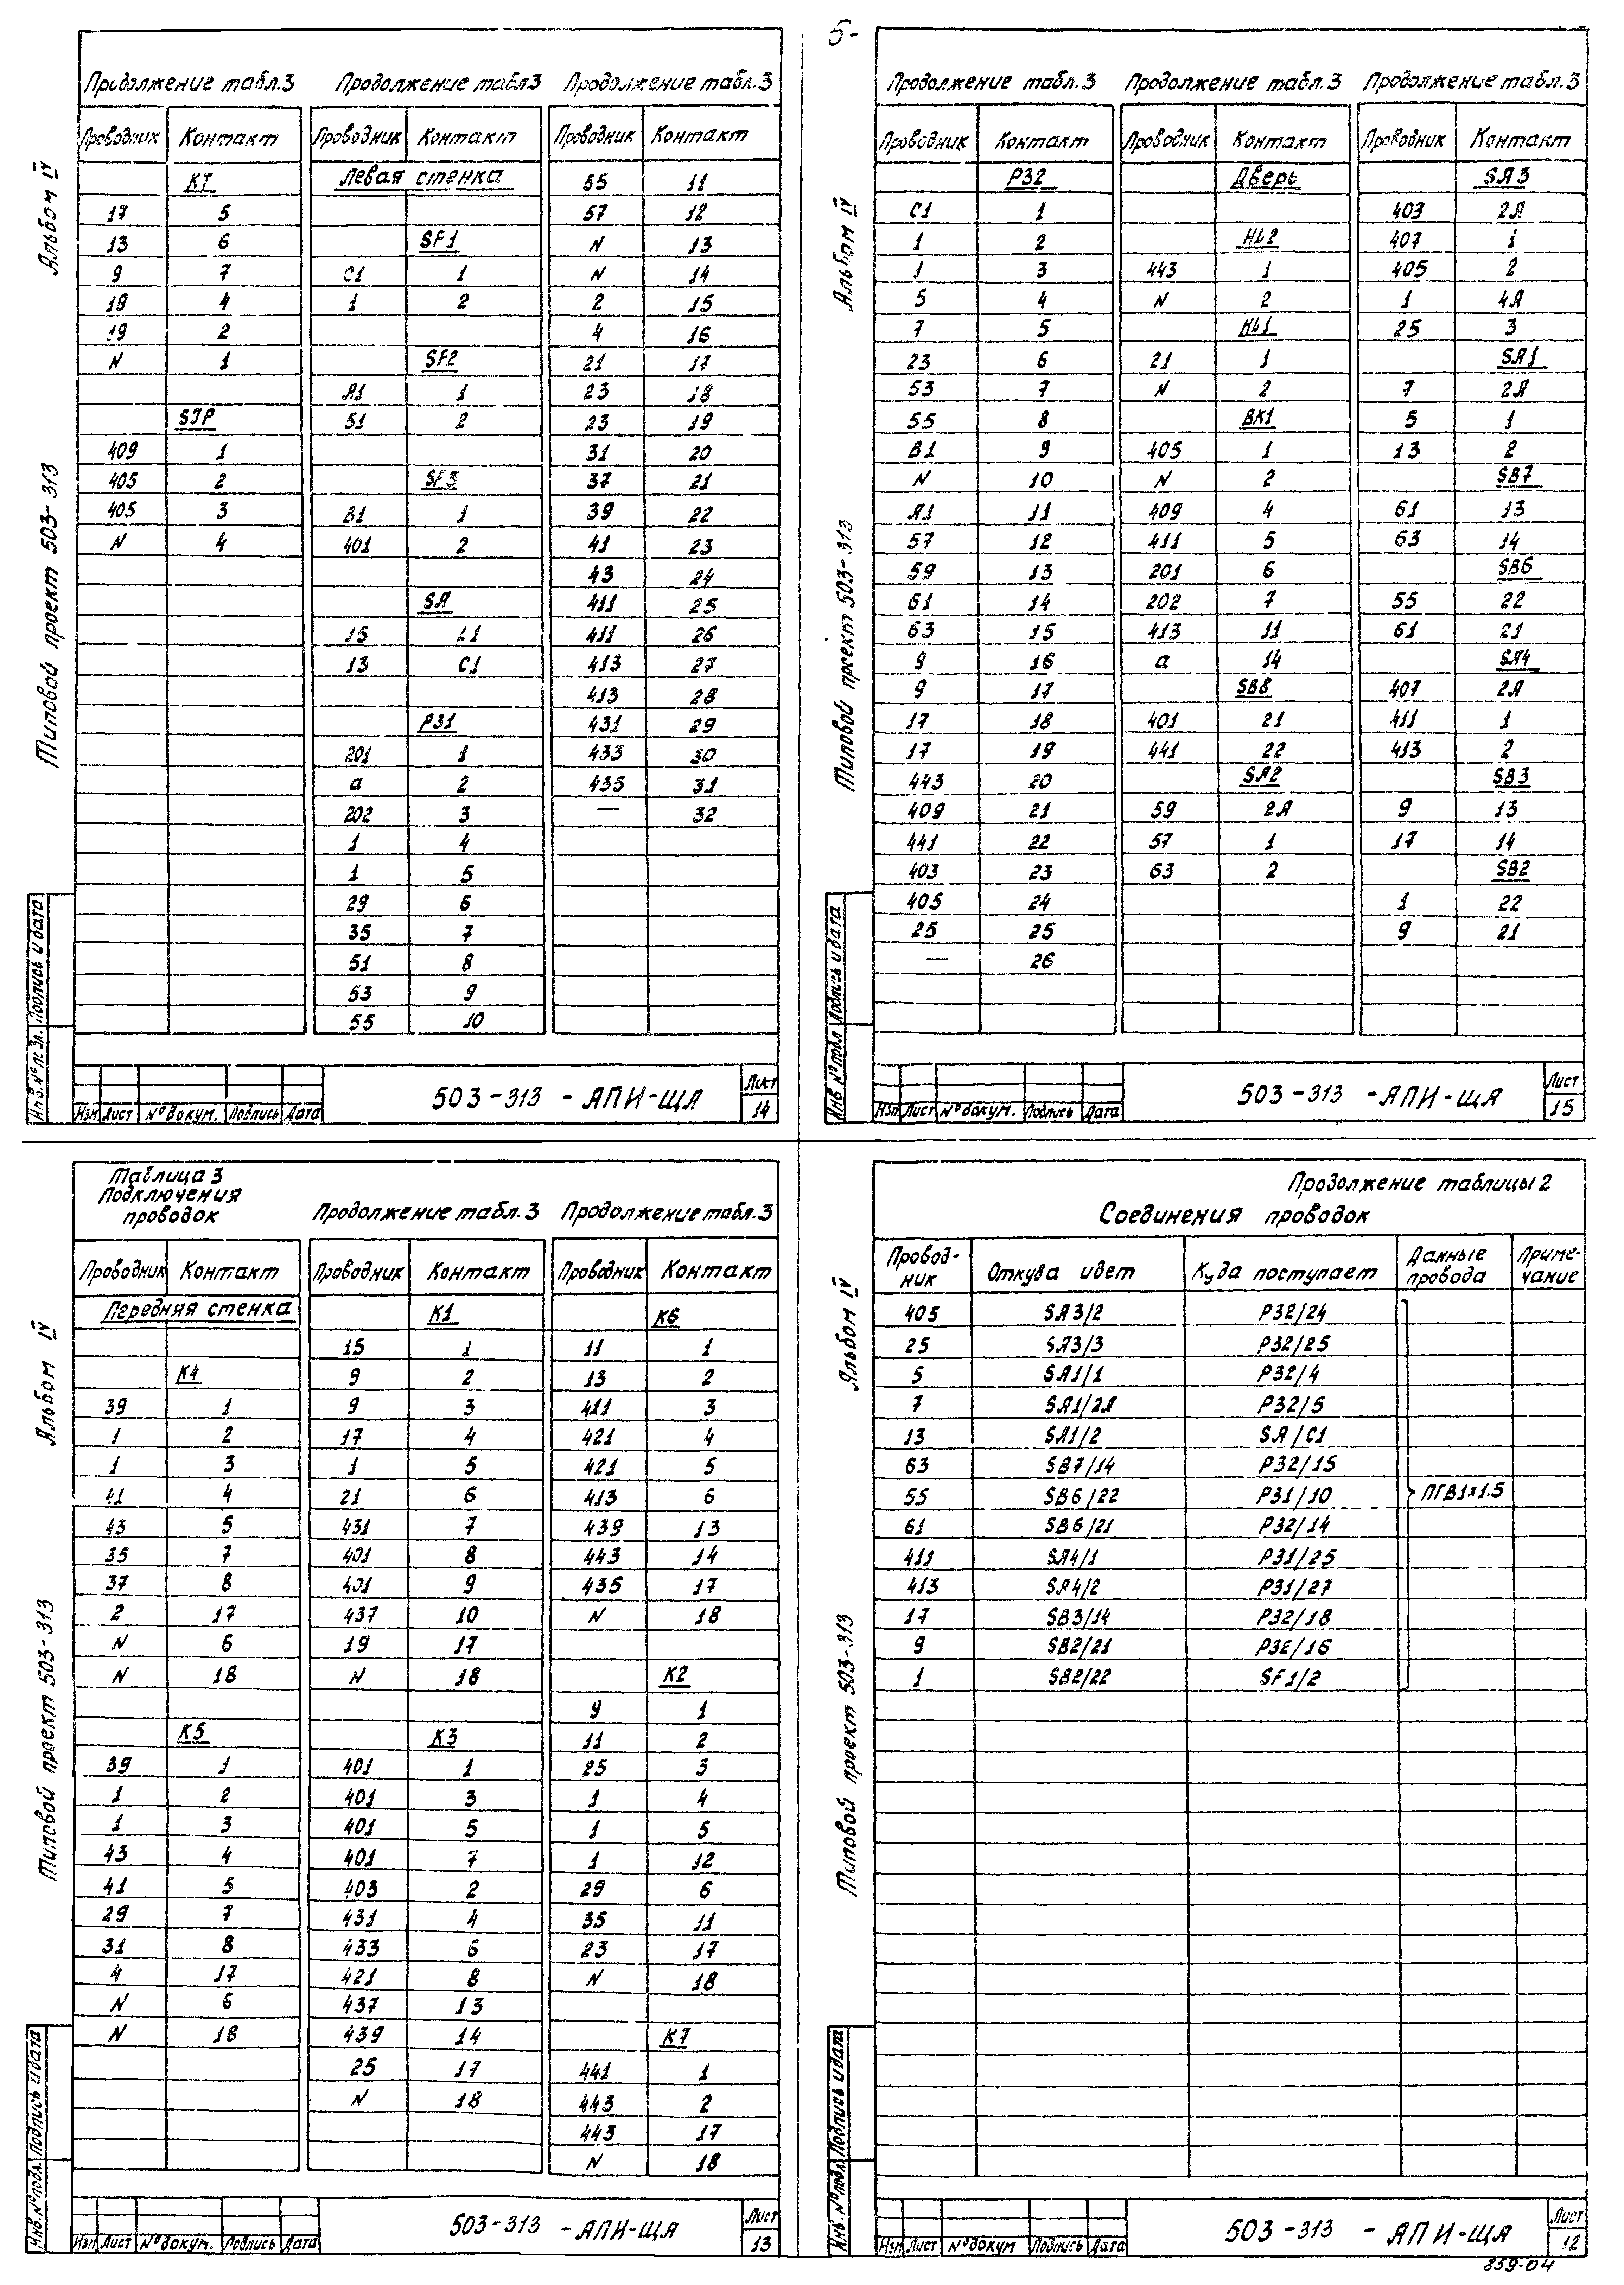 5-
Продолжение табл.3 Продолжение табл.3 Продолжение табл.3
Проводник Контакт Проводник Контакт Проводник Контакт
КТ Левая стенка 55 11
17 5 57 12
13 6 SF1 N 13
9 7 С1 1 N 14
18 4 1 2 2 15
19 2 4 16
N 1 SF2 21 17
А1 1 23 18
51 2 23 19
409 1 31 20
405 2 SF3 37 21
405 3 В1 1 39 22
N 4 401 2 41 23
43 24
SA 411 25
15 L1 411 26
13 С1 413 27
413 28
Р31 431 29
201 1 433 30
а 2 435 31
202 3 — 32
1 4
1 5
29 6
35 7
51 8
53 9
55 10
Альбом IV
Типовой проект 503-313
Подпись и дата
503-313 -АПИ-ЩА Лист
Изм Лист № докум. Подпись Дата 14
Продолжение табл.3 Продолжение табл.3 Продолжение табл.3
Проводник Контакт Проводник Контакт Проводник Контакт
Р32 Дверь SA3
С1 1 403 2А
1 2 HL2 407 1
1 3 443 1 405 2
5 4 N 2 1 4А
7 5 HL1 25 3
23 6 21 1 SA1
53 7 N 2 7 2А
55 8 ВК1 5 1
В1 9 405 1 13 2
N 10 N 2 SB7
А1 11 409 4 61 13
57 12 411 5 63 14
59 13 201 6 SB6
61 14 202 7 55 22
63 15 413 11 61 21
9 16 а 14 SA4
9 17 SB8 407 2А
17 18 401 21 411 1
17 19 441 22 413 2
443 20 SA2 SB3
409 21 59 2А 9 13
441 22 57 1 17 14
403 23 63 2 SB2
405 24 1 22
25 25 9 21
— 26
Альбом IV
Типовой проект 503-313
Инв № подл Подпись и дата
503-313 -АПИ-ЩА Лист
Изм Лист № докум. Подпись Дата 15
Таблица 3
Подключения
проводок Продолжение табл.3 Продолжение табл.3
Проводник Контакт Проводник Контакт Проводник Контакт
Передняя стенка К1 К6
15 1 11 1
К4 9 2 13 2
39 1 9 3 411 3
1 2 17 4 421 4
1 3 1 5 421 5
41 4 21 6 413 6
43 5 431 7 439 13
35 7 401 8 443 14
37 8 401 9 435 17
2 17 437 10 N 18
N 6 19 17
N 18 N 18 К2
9 1
К5 К3 11 2
39 1 401 1 25 3
1 2 401 3 1 4
1 3 401 5 1 5
43 4 401 7 1 12
41 5 403 2 29 6
29 7 431 4 35 11
31 8 433 6 23 17
4 17 421 8 N 18
N 6 437 13
N 18 439 14 К7
25 17 441 1
N 18 443 2
443 17
N 18
Альбом IV
Типовой проект 503-313
Инв. № подл. Подпись и дата
503-313 -АПИ-ЩА Лист
Изм Лист № докум. Подпись Дата 13
Продолжение таблицы 2
Соединения проводок
Провод- Откуда идет Куда поступает Данные Приме-
ник провода чание
405 SA3/2 Р32/24
25 SA3/3 Р32/25
5 SA1/1 Р32/4
7 SA1/2А Р32/5
13 SA1/2 SA/С1
63 SB7/14 Р32/15
55 SB6/22 Р31/10 ПГВ1х1.5
61 SB6/21 Р32/14
411 SA4/1 Р31/25
413 SA4/2 Р31/27
17 SB3/14 Р32/18
9 SB2/21 Р32/16
1 SB2/22 SF1/2
Альбом IV
Типовой проект 503-313
Инв. № подл. Подпись и дата
503-313 -АПИ-ЩА Лист
Изм Лист № докум Подпись Дата 12
859-04